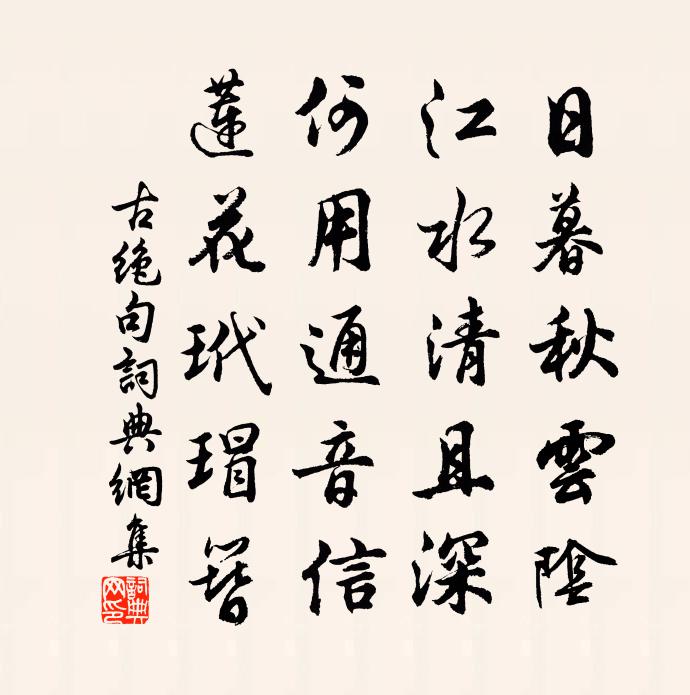 日暮秋雲陰
江水清且深
何用通音信
蓮花玳瑁簪
古絶句詞典網集
詞典網印